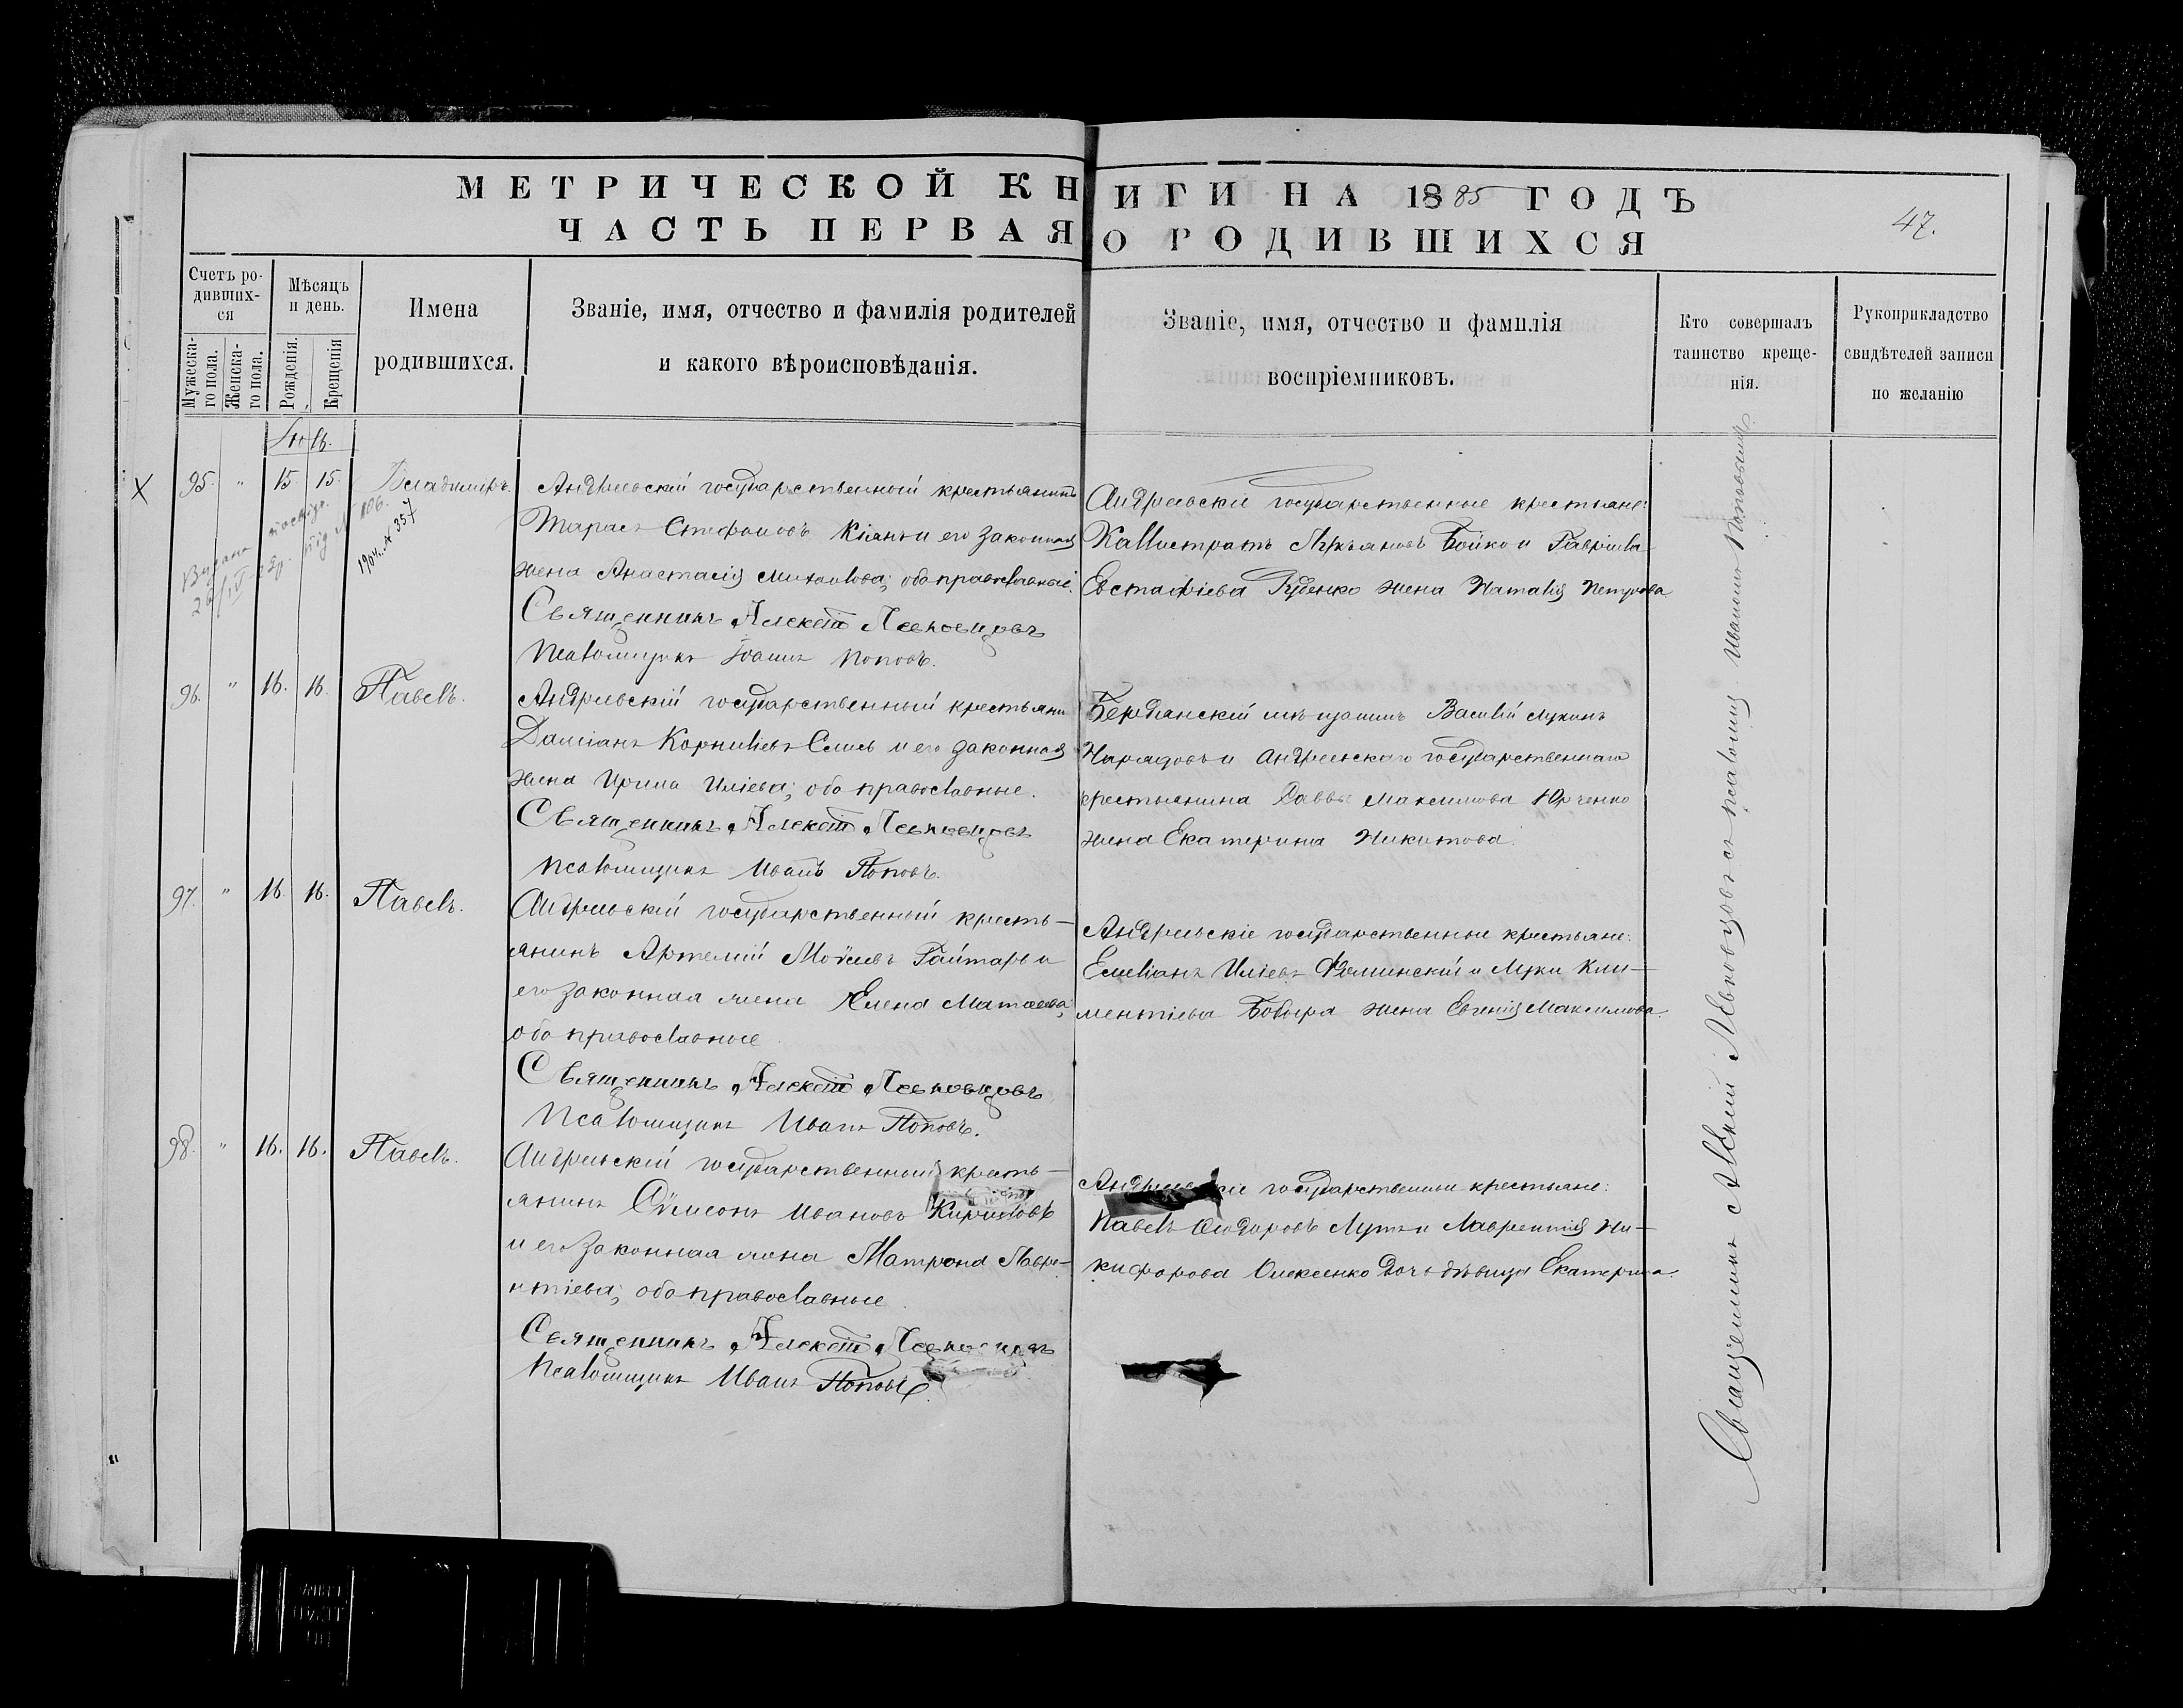 МЕТРИЧЕСКОЙ КНИГИ НА 1885 ГОДЪ
ЧАСТЬ ПЕРВАЯ О РОДИВШИХСЯ
47.
Счетъ ро-
дивших-
ся
Мужеска-
го пола.
Женска-
го пола.
Мѣсяцъ
и день.
Рожденія.
Крещенія
Имена
родившихся.
Званіе, имя, отчество и фамилія родителей
и какого вѣроисповѣданія.
Званіе, имя, отчество и фамилія
воспріемниковъ.
Кто совершалъ
таинство креще-
нія.
Рукоприкладство
свидѣтелей записи
по желанію
Іюль.
X
95. " 15. 15. Владиміръ.
1904. № 357
Андреевскій государственный крестьянинъ
Тарасъ Стефановъ и его законная
жена Анастасія Михаилова; оба православные.
Священникъ Алексій Левковцовъ
Псаломщикъ Іоаннъ Поповъ.
Андреевскіе государственные крестьяне:
Каллистратъ Лукьяновъ Бойко и Гавріила
Евстафіева Руденко жена Наталія Петрова.
96. " 16. 16. Павелъ.
Андреевскій государственный крестьянин
Даміанъ Корниліевъ и его законная
жена Ирина Иліева; оба православные.
Священникъ Алексій Левковцовъ
Псаломщикъ Иванъ Поповъ.
Бердянскій мѣщанинъ Василій Лукинъ
и Андреевскаго государственнаго
крестьянина Саввы Максимова Юрченко
жена Екатерина Никитова.
97. " 16. 16. Павелъ.
Андреевскій государственный кресть-
янинъ Артемій Моѵсеевъ Гайтаръ и
его законная жена Елена Матѳеева;
оба православные
Священникъ Алексій Левковцовъ
Псаломщикъ Иванъ Поповъ.
Андреевскіе государственные крестьяне:
Емеліанъ Иліевъ и Луки Кли-
ментіева Бобыря жена Евгенія Максимова.
98. " 16. 16. Павелъ.
Андреевскій государственный кресть-
янинъ Сѵмеонъ Ивановъ Кириловъ
и его законная жена Матрона Лавре-
нтіева; оба православные.
Священникъ Алексій Левковцовъ
Псаломщикъ Иванъ Поповъ.
Андреевскіе государственные крестьяне:
Павелъ Ѳеодоровъ и Лаврентія Ни-
кифорова Олексенко дочь дѣвица Екатерина.
Священникъ Алексій Левковцовъ съ псаломщ. Иваномъ Поповымъ.